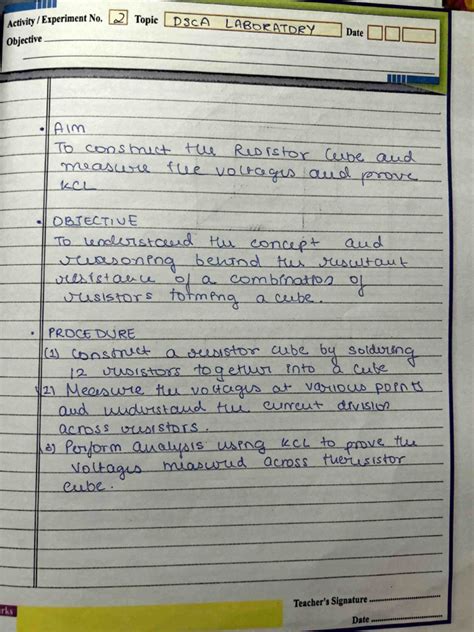 Activity/Experiment No. 2 Topic DSCA LABORATORY Date
Objective
• AIM
To construct the Resistor Cube and
measure the voltages and prove
KCL
• OBJECTIVE
To understand the concept and
reasoning behind the resultant
resistance of a combination of
resistors forming a cube.
• PROCEDURE
(1) Construct a resistor cube by soldering
12 resistors together into a cube
(2) Measure the voltages at various points
and understand the current division
across resistors.
(3) Perform analysis using KCL to prove the
voltages measured across the resistor
cube.
Teacher's Signature
rks
Date